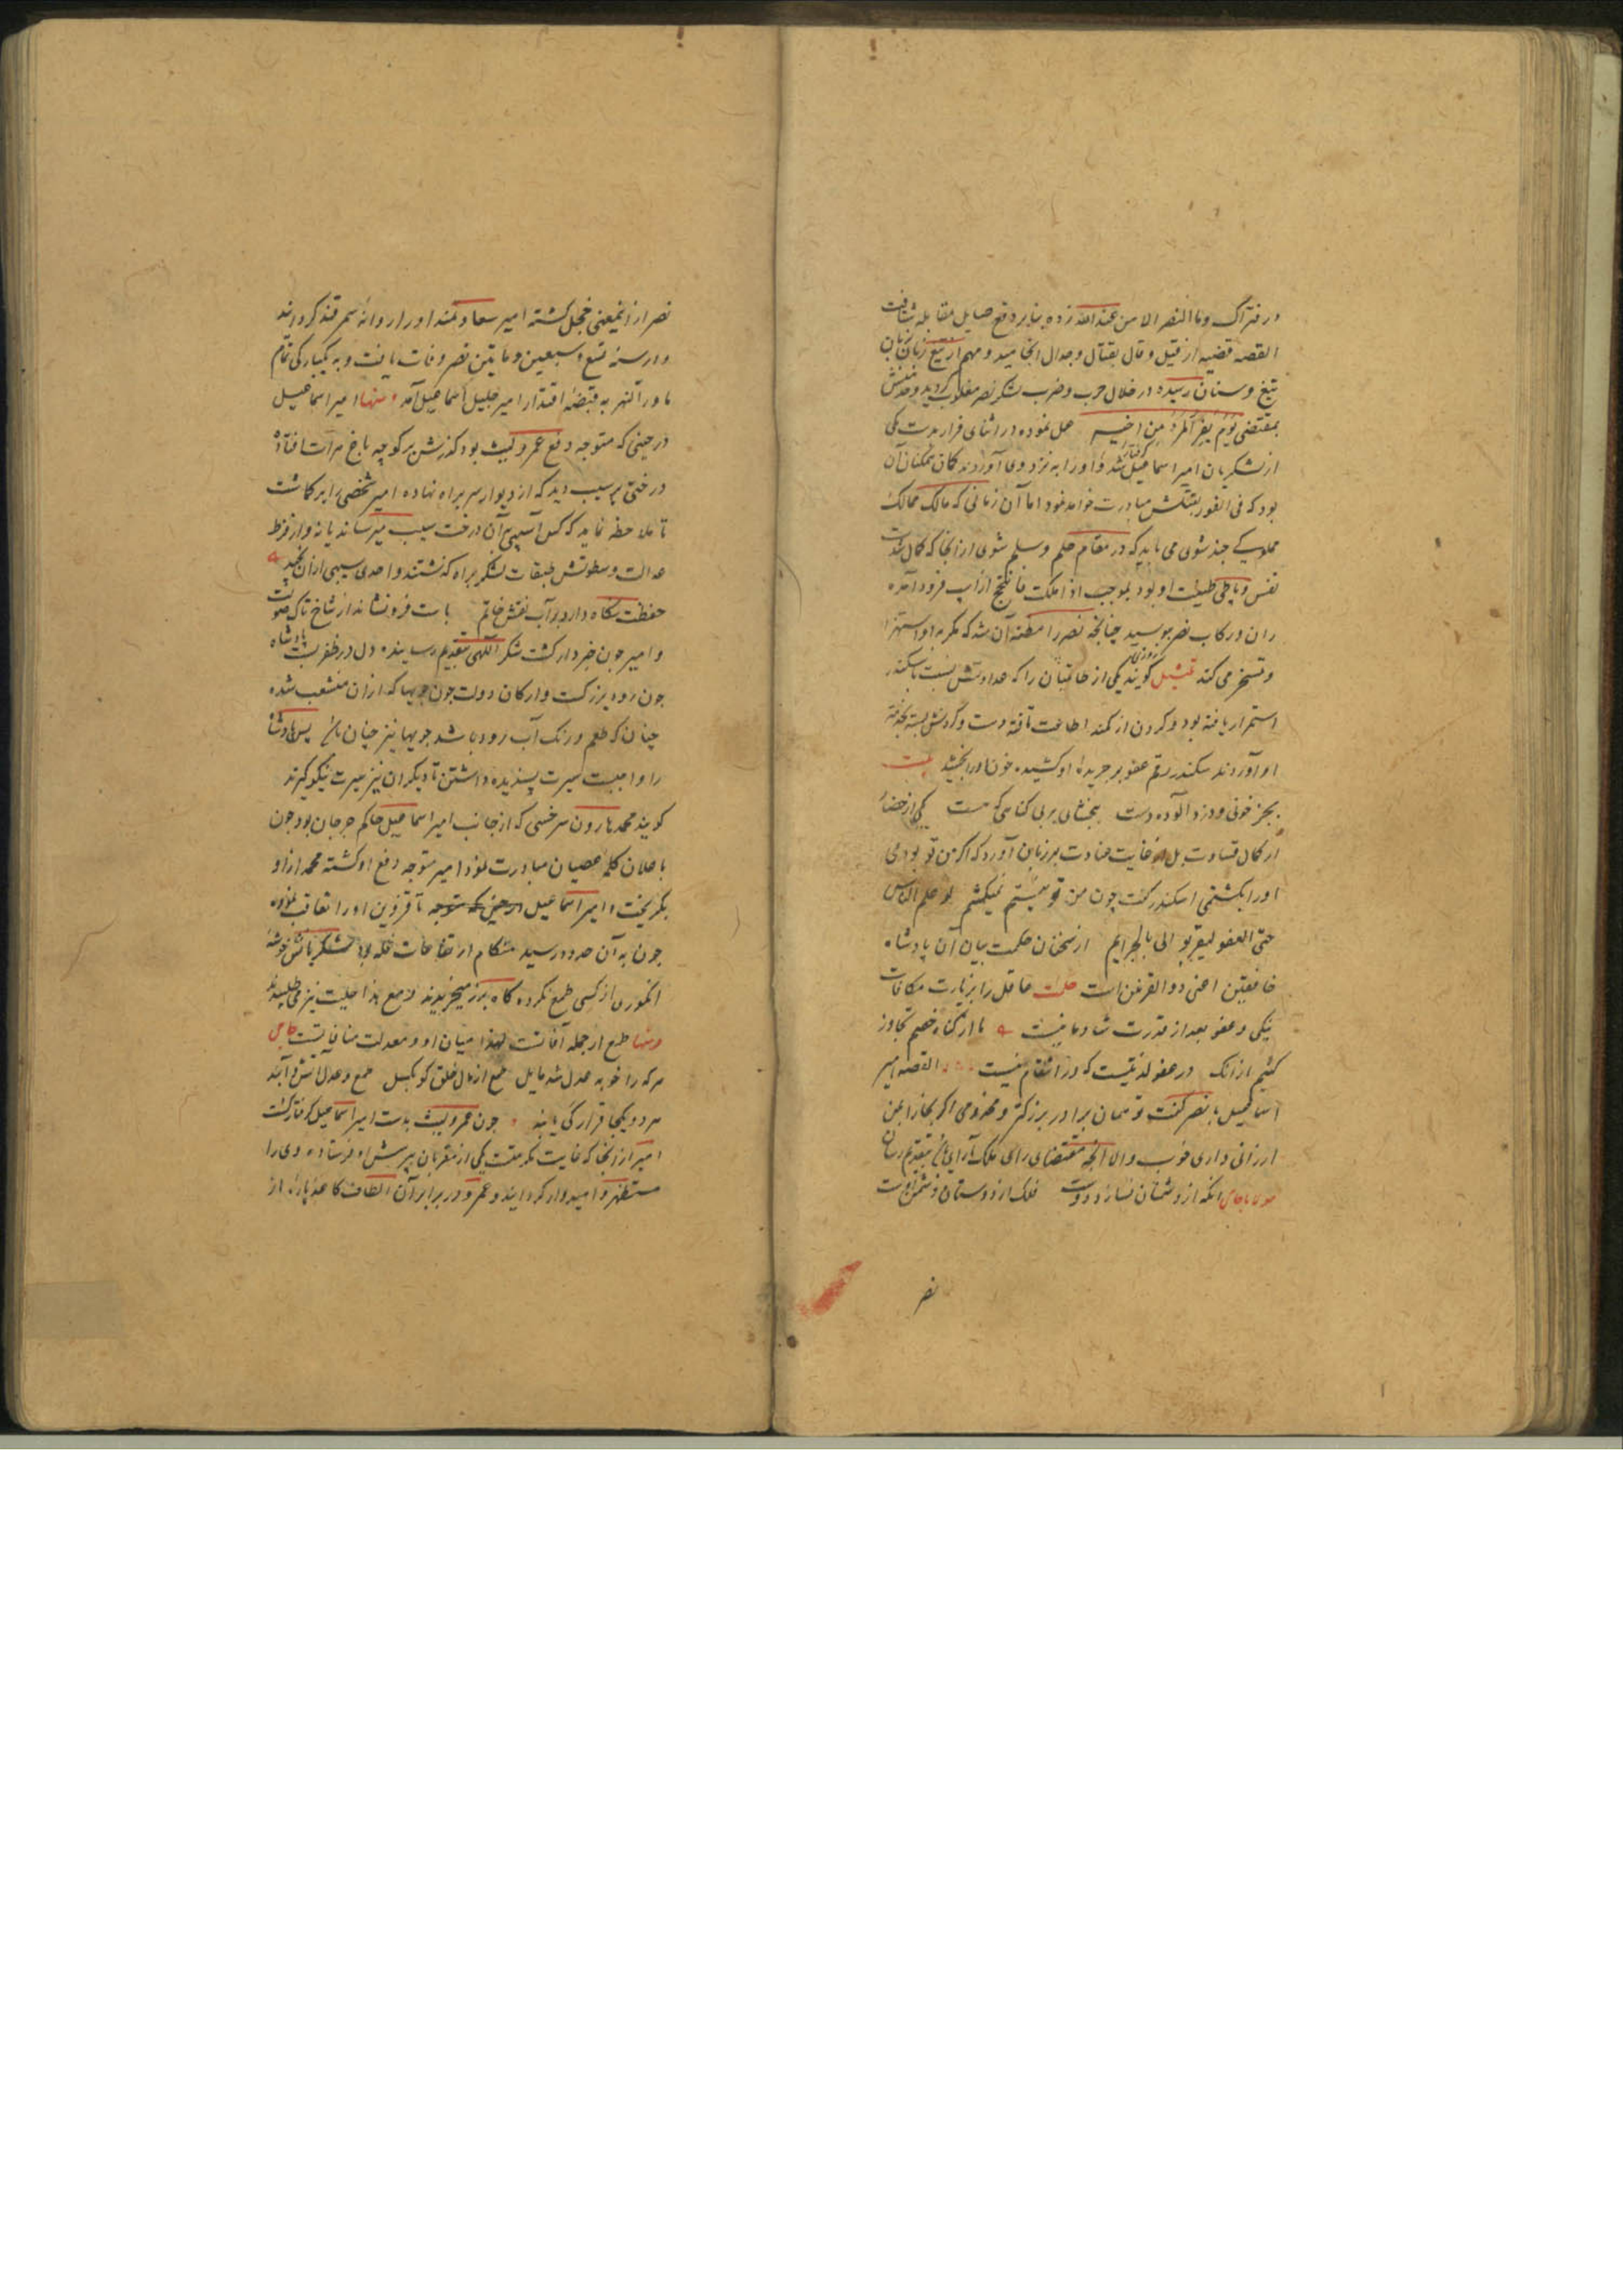 در فتراک وما النصر الا من عند الله زده بنابر دفع صایل مقابله شتافت
القصه قضیه از قیل و قال بقتال و جدال انجامید و مهم از تیغ زبان بزبان
تیغ و سنان رسیده در خلال حرب و ضرب لشکر نصر مغلوب کردید و خودش
بمقتضی یوم یفر المرء من اخیه عمل نموده در اثنای فرار بدست یکی
از لشکریان امیر اسماعیل گرفتار شد و او را به نزد وی آوردند کمان همکنان آن
بود که فی الفور بقتلش مبادرت خواهد نمود اما آن زمانی که مالک ممالک
مملوکی چند شوی می باید که در مقام حلم و سلم شوی از آنجا که کمال شرافت
نفس و پاکی طینت او بود بموجب اذا ملکت فاسجح از اسب فرود آمده
ران و رکاب نصر ببوسید چنانچه نصر را مظنه آن شد که مکر به او استهزا
و تسخر می کند تمثیل کویند روزی یکی از طاغیان را که عداوتش نسبت باسکندر
استمرار یافته بود و کردن از کمند اطاعت تافته دست و کردنش بسته بخدمت
او آوردند سکندر رقم عفو بر جریدهٔ او کشیده خون او را بخشید بیت
بجز خونی و دزد آلوده دست ببخشای بر بی کناهی که هست یکی از حضار
از کمال قساوت بل از غایت عناد برزبان آورد که اکر من تو بودمی
او را بکشتمی اسکندر کفت چون من تو نیستم نمیکشم لو علم الناس
حبی العفو لیتقربوا الی بالجرایم از سخنان حکمت بیان آن پادشاه
خافقین اعنی ذو القرنین است حکمت عاقل را بزیارت مکافات
نیکی و عفو بعد از قدرت شادمانیست ما از کناه خصم تجاوز
کنیم از آنک در عفو لذتیست که در انتقام نیست القصه امیر
اسماعیل با نصر کفت تو همان برادر بزرکتر و مخدومی اکر بخارا بمن
ارزانی داری خوب والا آنچه مقتضای رای ملک آرای بتقدیم رسان
مولانا جامی آنکه از دشمنان نسازد دوست فلک از دوستان دشمن اوست
نصر
نصر از اینمعنی خجل کشته امیر سعادتمند او را روانهٔ سمرقند کردانید
و در سنه تسع و سبعین و مایتین نصر وفات یافت و به یکبارکی تمام
ماورا النهر به قبضهٔ اقتدار امیر جلیل اسماعیل آمد و منها امیر اسماعیل
در حینی که متوجه دفع عمرو لیث بود کذرش بر کوچه باغ هرات افتاد
درختی پر سیب دید که از دیوار سر براه نهاده امیر شخصی را بر کماشت
تا ملاحظه نماید که کس آسیبی بر آن درخت سیب میرساند یا نه و از فرط
عدالت و سطوتش طبقات لشکر براه کذشتند و احدی سیبی از آن نچید
حفظت نکاه دارد بر آب نقش خاتم باست فرو نشاند از شاخ تاک صولت
و امیر چون خبردار کشت شکر الهی بتقدیم رسانیده دل در ظفر بست پادشاه
چون رود بزرکست و ارکان دولت چون جویها که از آن منشعب شده
چنان که طعم و رنک آب رود باشد جویها نیز چنان باشد پس پادشاه
را واجبست سیرت پسندیده داشتن تا دیکران نیز سیرت نیکو کیرند
کویند محمد هارون سرخسی که از جانب امیر اسماعیل حاکم جرجان بود چون
باعلان کلمهٔ عصیان مبادرت نمود امیر متوجه دفع او کشته محمد از او
بکریخت و امیر اسماعیل در حینی که متوجه تا قزوین او را تعاقب نموده
چون به آن حدود رسید هنکام ارتفاعات غله بود لشکریانش خوشهٔ
انکوری از کسی طمع نکرده کاه بزر میخریدند و مع هذا حلیت نیز می طلبیدند
و منها طمع از جمله آفاتست لهذا میان او و معدلت منافاتست جامی
هر که را خو به عدل شد مایل طمع از مال خلق کو بکسل طمع و عدل آتش و آبند
هر دو یکجا قرار کی یابند چون عمرو لیث بدست امیر اسماعیل کرفتار کشت
امیر از آنجا که غایت مکرمتست یکی از مقربان بپرسش او فرستاده وی را
مستظهر و امیدوار کردانید و عمرو در برابر آن الطاف کاغذ پارهٔ از